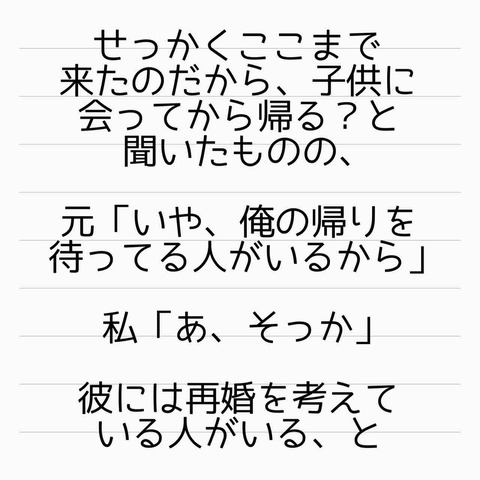 せっかくここまで
来たのだから、子供に
会ってから帰る？と
聞いたものの、
元「いや、俺の帰りを
待ってる人がいるから」
私「あ、そっか」
彼には再婚を考えて
いる人がいる、と